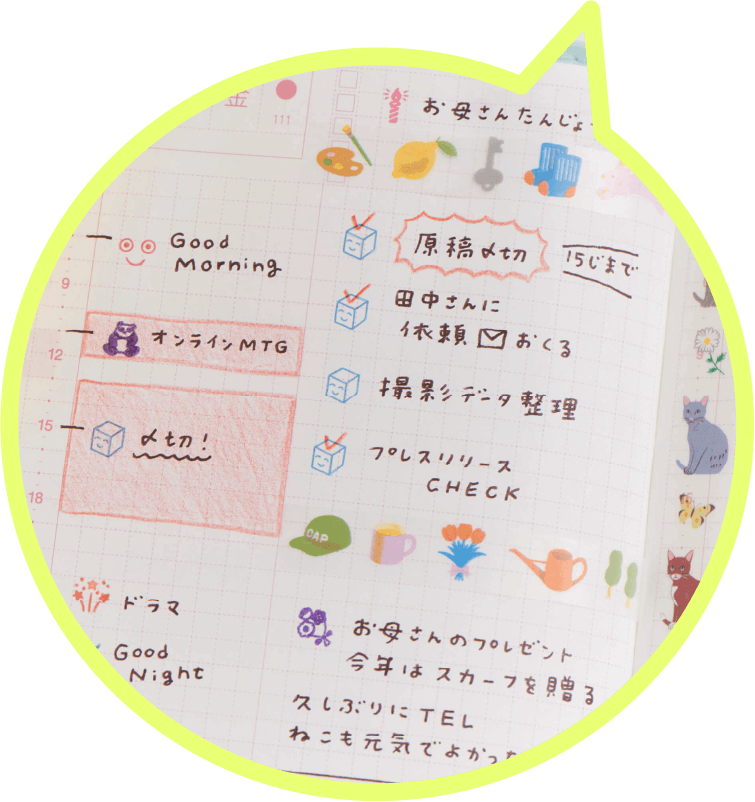 金
111
お母さんたんじょ
Good
Morning
9
12
15
18
オンラインMTG
〆切!
ドラマ
Good
Night
原稿〆切
15じまで
田中さんに
依頼 おくる
撮影データ整理
プレスリリース
CHECK
CAP
お母さんのプレゼント
今年はスカーフを贈る
久しぶりにTEL
ねこも元気でよかった